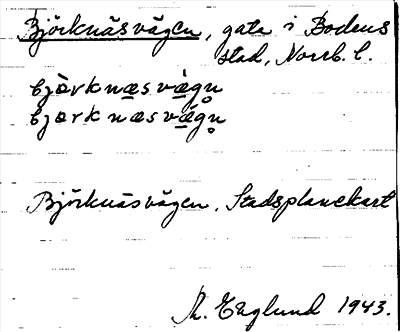 Björknäsvägen, gata i Bodens
stad, Norrb. l.
bjö̀rknæsvæ̀gn̥
bjœrknæsvægn̥
Björknäsvägen, Stadsplanekart
Th. Englund 1943.